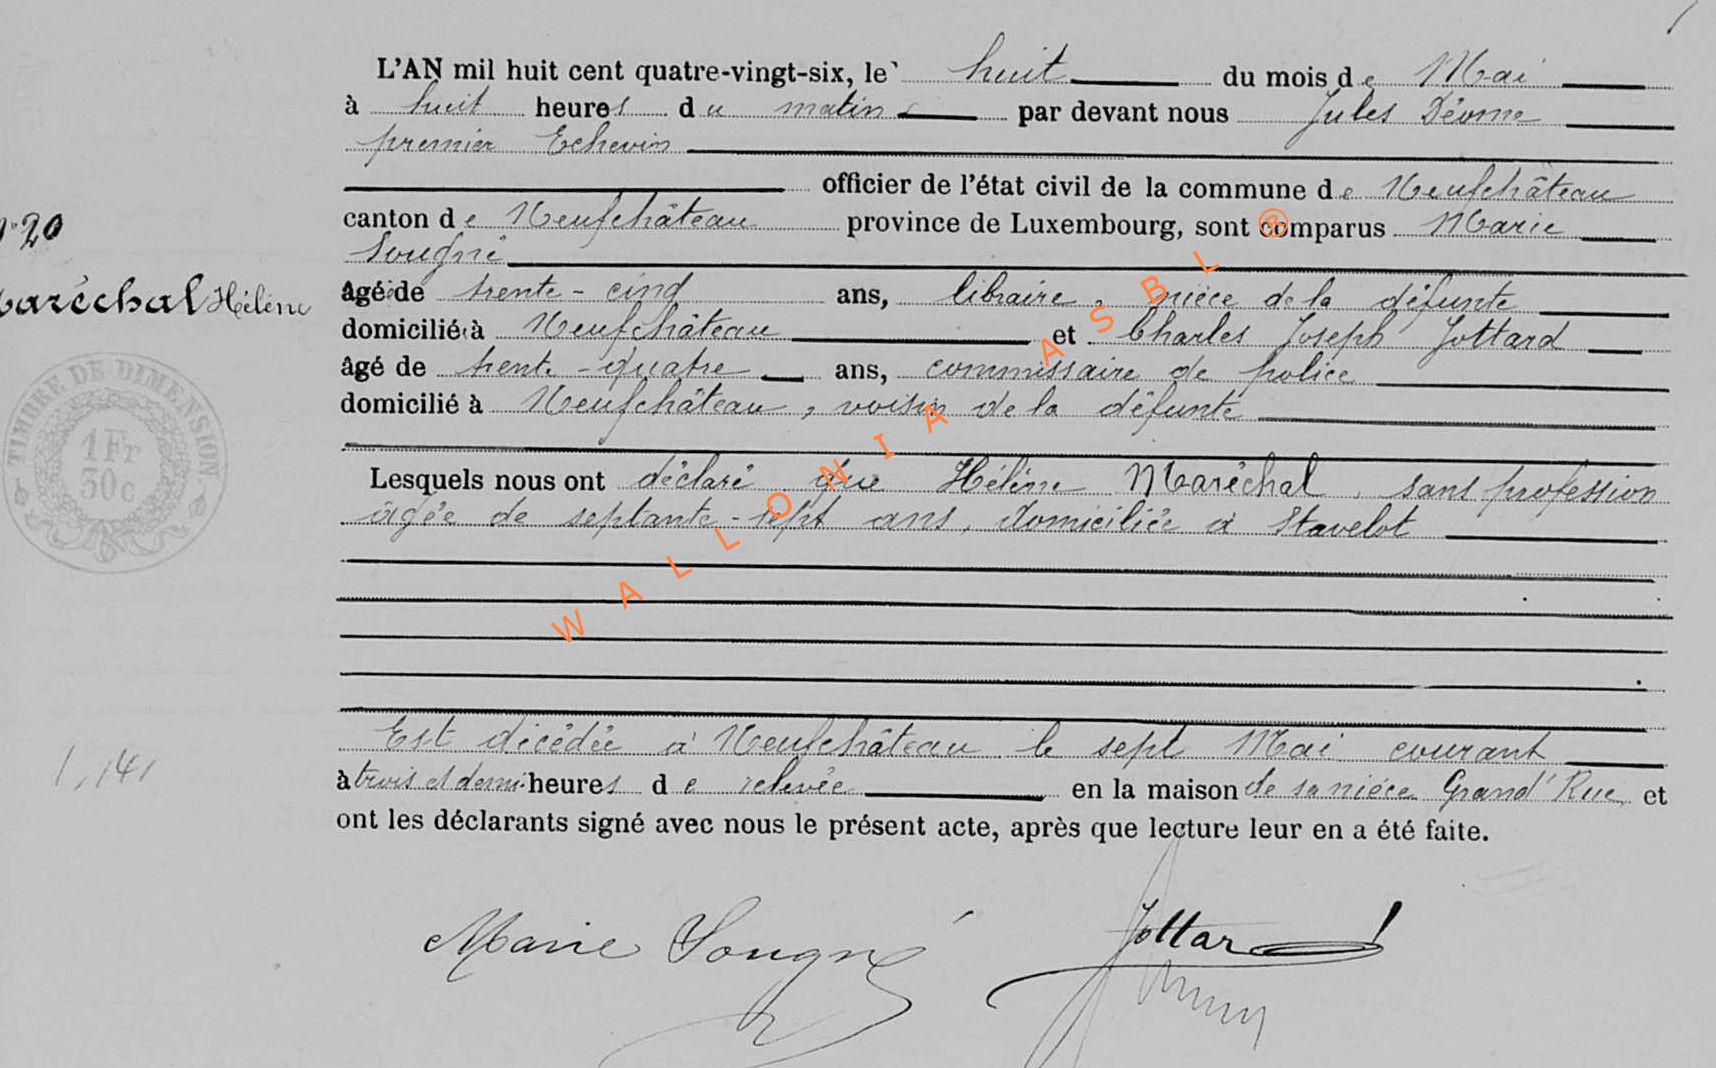 L'AN mil huit cent quatre-vingt-six, le huit du mois de Mai
à huit heures du matin par devant nous Jules
premier Echevin
officier de l'état civil de la commune de Neufchâteau
canton de Neufchâteau province de Luxembourg, sont comparus Marie
Sougné
N° 20
Maréchal Hélène
âgée de trente-cinq ans, libraire, nièce de la défunte
domicilié à Neufchâteau et Charles Joseph Jottard
âgé de trente-quatre ans, commissaire de police
domicilié à Neufchâteau, voisin de la défunte
TIMBRE DE DIMENSION
1 Fr
30 c
Lesquels nous ont déclaré que Hélène Maréchal, sans profession
âgée de septante-sept ans, domiciliée à Stavelot
Est décédée à Neufchâteau le sept Mai courant
à trois et demi heures de relevée en la maison de sa nièce Grand'Rue et
ont les déclarants signé avec nous le présent acte, après que lecture leur en a été faite.
Marie Sougné
Jottard
WALLONIA ASBL ®